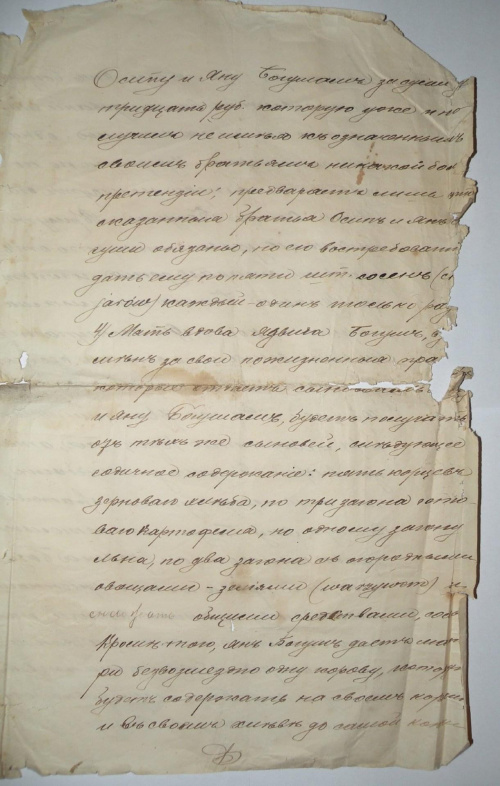 Осипу и Яну Богушамъ за сумму
тридцать руб. которую уже и по
лучилъ не имѣя къ означеннымъ
своимъ братьямъ никакой бол
претензіи; предваряетъ лишь
сказанные братья Осипъ и Янъ
гуши обязаны, по его востребованію
дать ему по пяти шт. сосенъ
каждый - одинъ только раз
4/ Мать вдова Ядвига Богушъ,
за свои пожизненныя пра
которыя сыновьямъ
и Яну Богушамъ, будетъ получать
отъ тѣхъ же сыновей, слѣдующее
годичное содержаніе: пять корцевъ
зерноваго хлѣба, по три загона гото
ваго картофеля, по одному загону
льна, по два загона съ огородными
овощами - зеліями (warzywo) и
общими средствами,
Кромѣ того, Янъ Богушъ дастъ мате
ри безвозмездно одну корову, котор
будетъ содержать на своемъ корм
и въ своемъ хлѣвѣ до самой